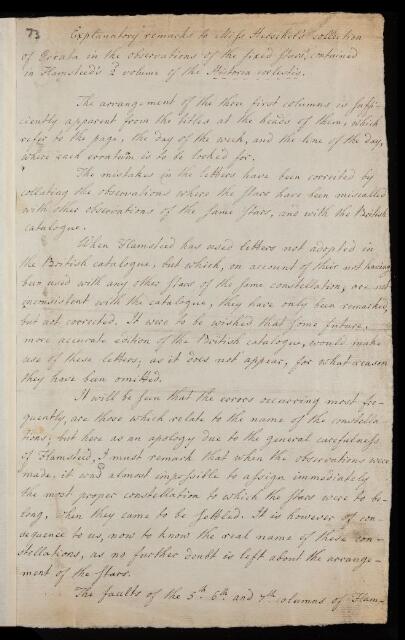 73
Explanatory remarks to Miss Herschel's collection
of Errata in the observations of the fixed stars, contained
in Flamsteed's 2d volume of the Historia coelestis.
The arrangement of the three first columns is suffi-
ciently apparent from the titles at the heads of them, which
refer to the page, the day of the week, and the line of the day,
where each erratum is to be looked for.
The mistakes in the letters have been corrected by
collating the observations where the stars have been miscalled
with other observations of the same stars, and with the British
catalogue.
When Flamsteed has used letters not adopted in
the British catalogue, but which, on account of their not having
been used with any other stars of the same constellation, are not
inconsistent with the catalogue, they have only been remarked,
but not corrected. It were to be wished that some future,
more accurate edition of the British catalogue, would make
use of these letters; as it does not appear, for what reason
they have been omitted.
It will be seen that the errors occurring most fre-
quently, are those which relate to the name of the constella-
tions; but here as an apology due to the general carefulness
of Flamsteed, I must remark that when the observations were
made, it was almost impossible to assign immediately
the most proper constellation to which the stars were to be-
long, when they came to be settled. It is however of con-
sequence to us, now to know the real name of these con-
stellations, as no further doubt is left about the arrange-
ment of the stars.
The faults of the 5th 6th and 7th columns of Flam-